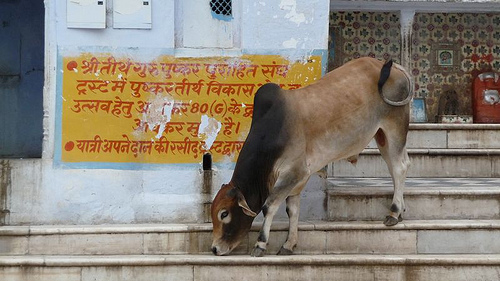 • श्री तीर्थ गुरु पुष्कर पुरोहित संघ
ट्रस्ट में पुष्कर तीर्थ विकास
उत्सव हेतु कर 80 (G) के
कर है।
• यात्री अपने दान की रसीद